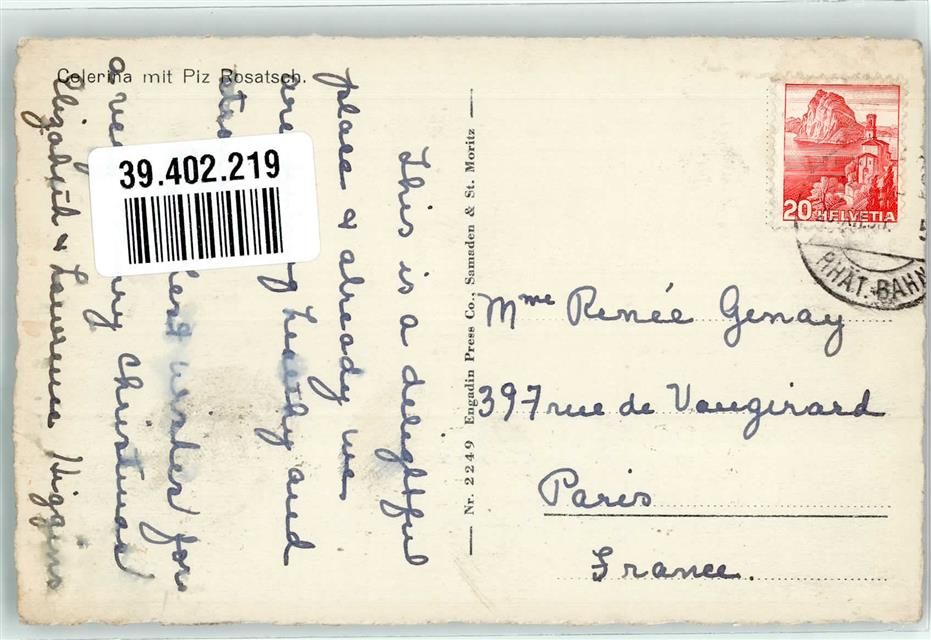 Celerina mit Piz Rosatsch.
This is a delightful
place & already we
are healthy and
best wishes for
a very Merry Christmas
Elizabeth & Lawrence Higgins
39.402.219
Nr. 2249 Engadin Press Co., Samaden & St. Moritz
20 HELVETIA
RHÄT. BAHN
Mme Renée Genay
397 rue de Vaugirard
Paris
France.